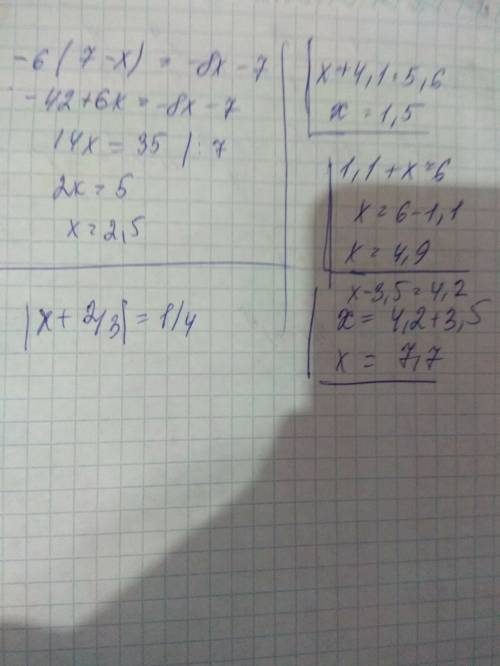 -6(7-x) = -8x-7
-42+6x=-8x-7
14x = 35 |:7
2x = 5
x=2,5
|x+2/3|=1/4
x+4,1=5,6
x=1,5
1,1+x=6
x=6-1,1
x=4,9
x-3,5=4,2
x=4,2+3,5
x=7,7